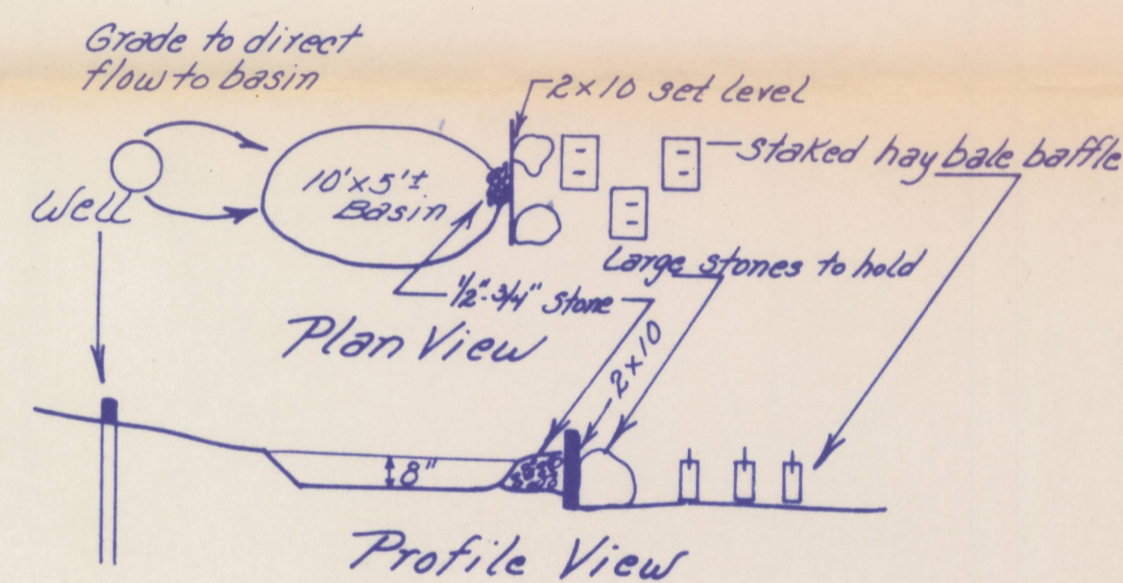 Grade to direct
flow to basin
2x10 set level
staked hay bale baffle
10'x5'±
Basin
Well
Large stones to hold
1/2"-3/4" stone
Plan View
2x10
8"
Profile View